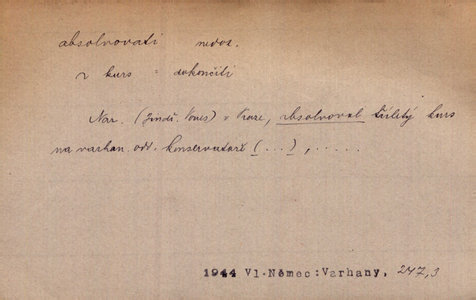 absolvovati nedok.
~ kurs = dokončiti
Nar. (Jindř. Vones) v Praze, absolvoval tříletý kurs
na varhan. odd. konservatoře (...), .....
1944 Vl.Němec:Varhany, 247,3